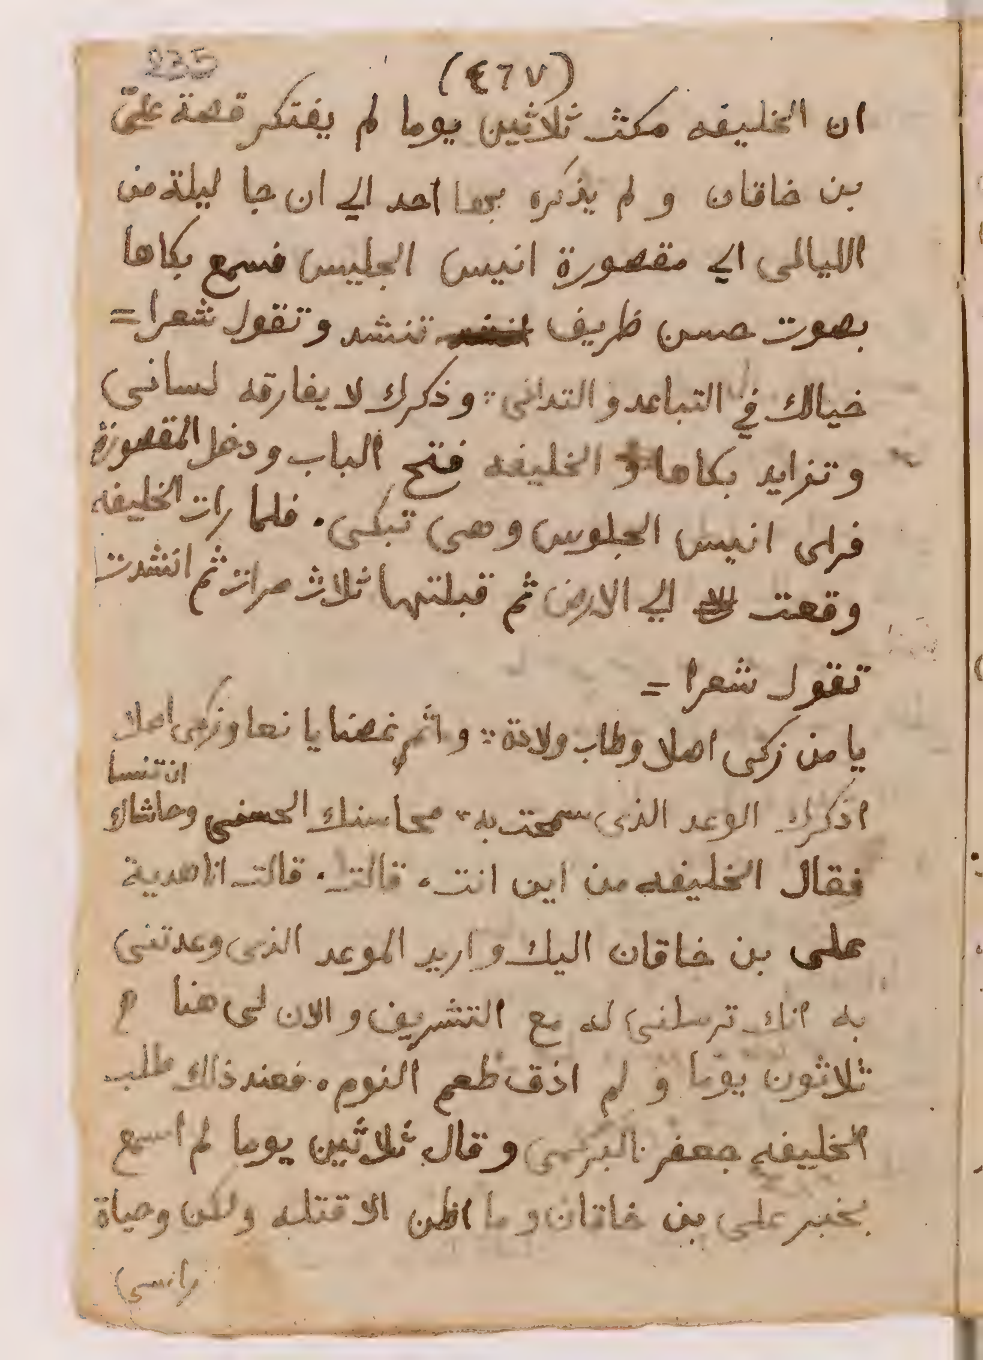 235
(٤٦٧)
ان الخليفه مكث ثلاثين يوما لم يفتكر قصة علي
بن خاقان و لم يذكره بها احد الي ان جا ليلة من
الليالى الي مقصورة انيس الجليس فسمع بكاها
بصوت حسن ظريف تنشد وتقول شعرا =
خيالك في التباعد و التدانى وذكرك لا يفارقه لسانى
و تزايد بكاها و الخليفه فتح الباب ودخل المقصورة
فراى انيس الجلوس وهى تبكى . فلما رات الخليفه
وقعت الي الارض ثم قبلتها ثلاث مرات ثم انشدت
تقول شعرا =
يا من زكى اصلا وطاب ولادة واثمر غصنا يا نعا وزكى اصلا
ان تنسا
اذكرك الوعد الذى سمحت به محاسنك الحسنى وحاشاك
فقال الخليفه من اين انت . قالت . قالت انا هدية
على بن خاقان اليك و اريد الموعد الذى وعدتنى
به انك ترسلنى له مع التشريف و الان لى هنا
ثلاثون يوما و لم اذق طعم النوم . فعند ذالك طلب
الخليفه جعفر البرمكى وقال ثلاثين يوما لم اسمع
بخبر على بن خاقان و ما اظن الا قتله ولكن وحياة
راسى